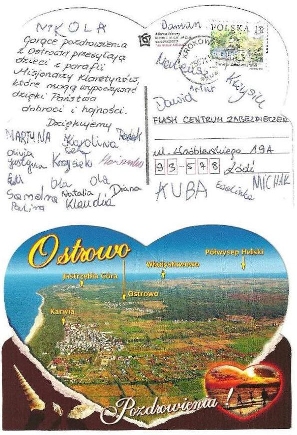 NIKOLA
Gorące pozdrowienia
z Ostrowa przesyłają
dzieci z parafii
Misjonarzy Klaretynów,
które mogą wypoczywać
dzięki Państwa
dobroci i hojności.
Dziękujemy
MARTYNA Karolina Radek
Justyna Krzysiek
Ola Ola
Samelma Natalia Diana
Paulina Klaudia
Damian
POLSKA
Krzysiu
Artur
Dawid
FLASH CENTRUM ZABEZPIECZEŃ
ul. Wróblewskiego 19A
93-578 Łódź
KUBA Ewelinka MICHAŁ
Ostrowo
Półwysep Helski
Władysławowo
Jastrzębia Góra
Ostrowo
Karwia
Pozdrowienia!